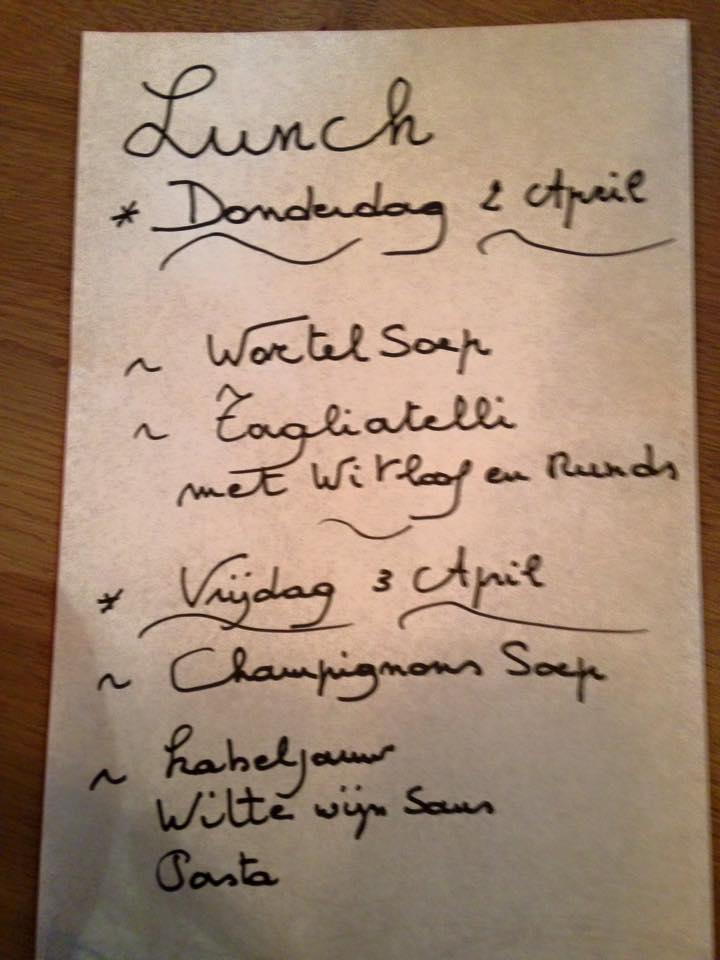 Lunch
* Donderdag 2 April
~ Wortel Soep
~ Tagliatelli
met Witloof en Runds
* Vrijdag 3 April
~ Champignons Soep
~ kabeljauw
Witte wijn Saus
Pasta